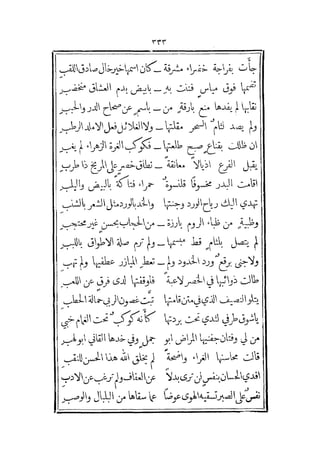 ٣٣٣
جأت بفراجة خضراء مشرقة – كان اسمها خير خال صادق اللقب
تضمها فوق مياس فتنت به – بابيض بدم العشاق مختضب
نقابها لم يفدها منع بارقٍ من – باسم عن صحاح الدر والحبب
ولم يصد لثام السحر مقلتها – ولا الغلائل فعل الاملد الرطب
ان ظلت بقناع صبح طلعتها – فكوكب الغرة الزهراء لم يغب
يقبل القرع اذيالاً معانقة – نطاق خصر على المريخ ذا طرب
اقامت البدر مخسوفًا قلنسوة – حمراء فتاكة بالبيض واليلب
تهدي اليك رياح الورد وجنتها – والخد بالورد مثل الشعر بالشنب
وظبية من ظباء الروم بارزة – من الحجاب بحسن غير محتجب
لم يتصل بلثام قط مبسمها – ولم ترم صلة الاطواق باللبب
ولا جنى برقع ورد الخدود ولم – تعطر الميازر عطفيها ولم تهب
طالت ذوائبها في الخصر لاعبة – فاوقفتها لدى فرق عن اللعب
يتلو النصيف الذي في متن قامتها – تبت غصون الربى حمالة الحطب
ياشوق طرفي لثدي تحت بردتها – كأنه كوكب تحت الغمام خبي
من لي وفتان جفنيها المراض ابو – جهل وفي خدها القاني ابو لهب
قالت محاسنها الغراء واضحة – لم يخلق الله هذا الحسن للنقب
افدي الحسان بنفس لن ترى بدلاً – عن العفاف ولم ترغب عن الادب
نفس على الصبر تسقيه الهوى عوضًا – عما سقاها من البلبال والوصب